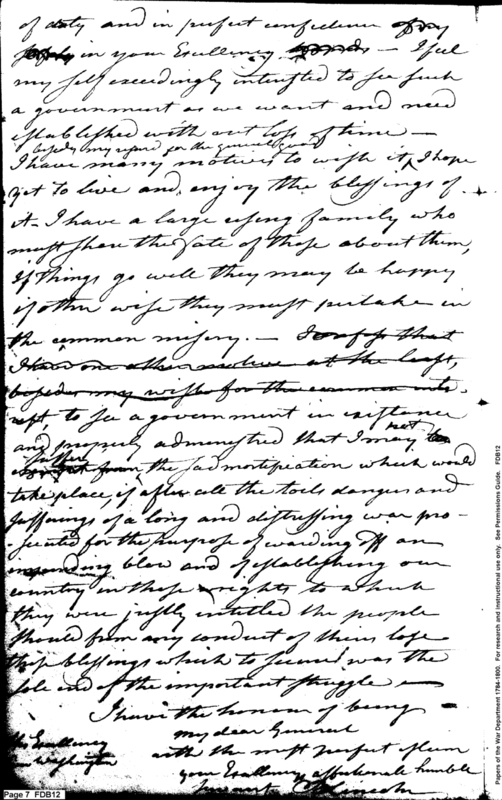 of duty and in perfect confidence of my
safety in your Excellency — I feel
my self exceedingly intrested to see such
a government as we want and need
established with out loss of time —
besides my regard for the general good
I have many motives to wish it, I hope
yet to live and enjoy the blessings of
it - I have a large rising family who
must share the fate of those about them,
If things go well they may be happy
if other wise they must pertake in
the common misery. — I confess that
I have one other motive at the least,
besides my wishes for the common inte-
rest, to see a government in existance
and properly administred that I may not
suffer the sad mortification which would
take place, if after all the toils dangers and
sufferings of a long and distressing war pro-
-secuted for the purpose of warding off an
impending blow and of establishing our
country in those rights to which
they were justly entitled the people
should from any conduct of theirs lose
those blessings which to secure was the
sole end of the important struggle —
I have the honour of being —
my dear General
with the most perfect esteem
his Excellency
Washington
your Excellency affectionate humble
servant B Lincoln
Page 7 FDB12
Papers of the War Department 1784-1800. For research and instructional use only. See Permissions Guide. FDB12